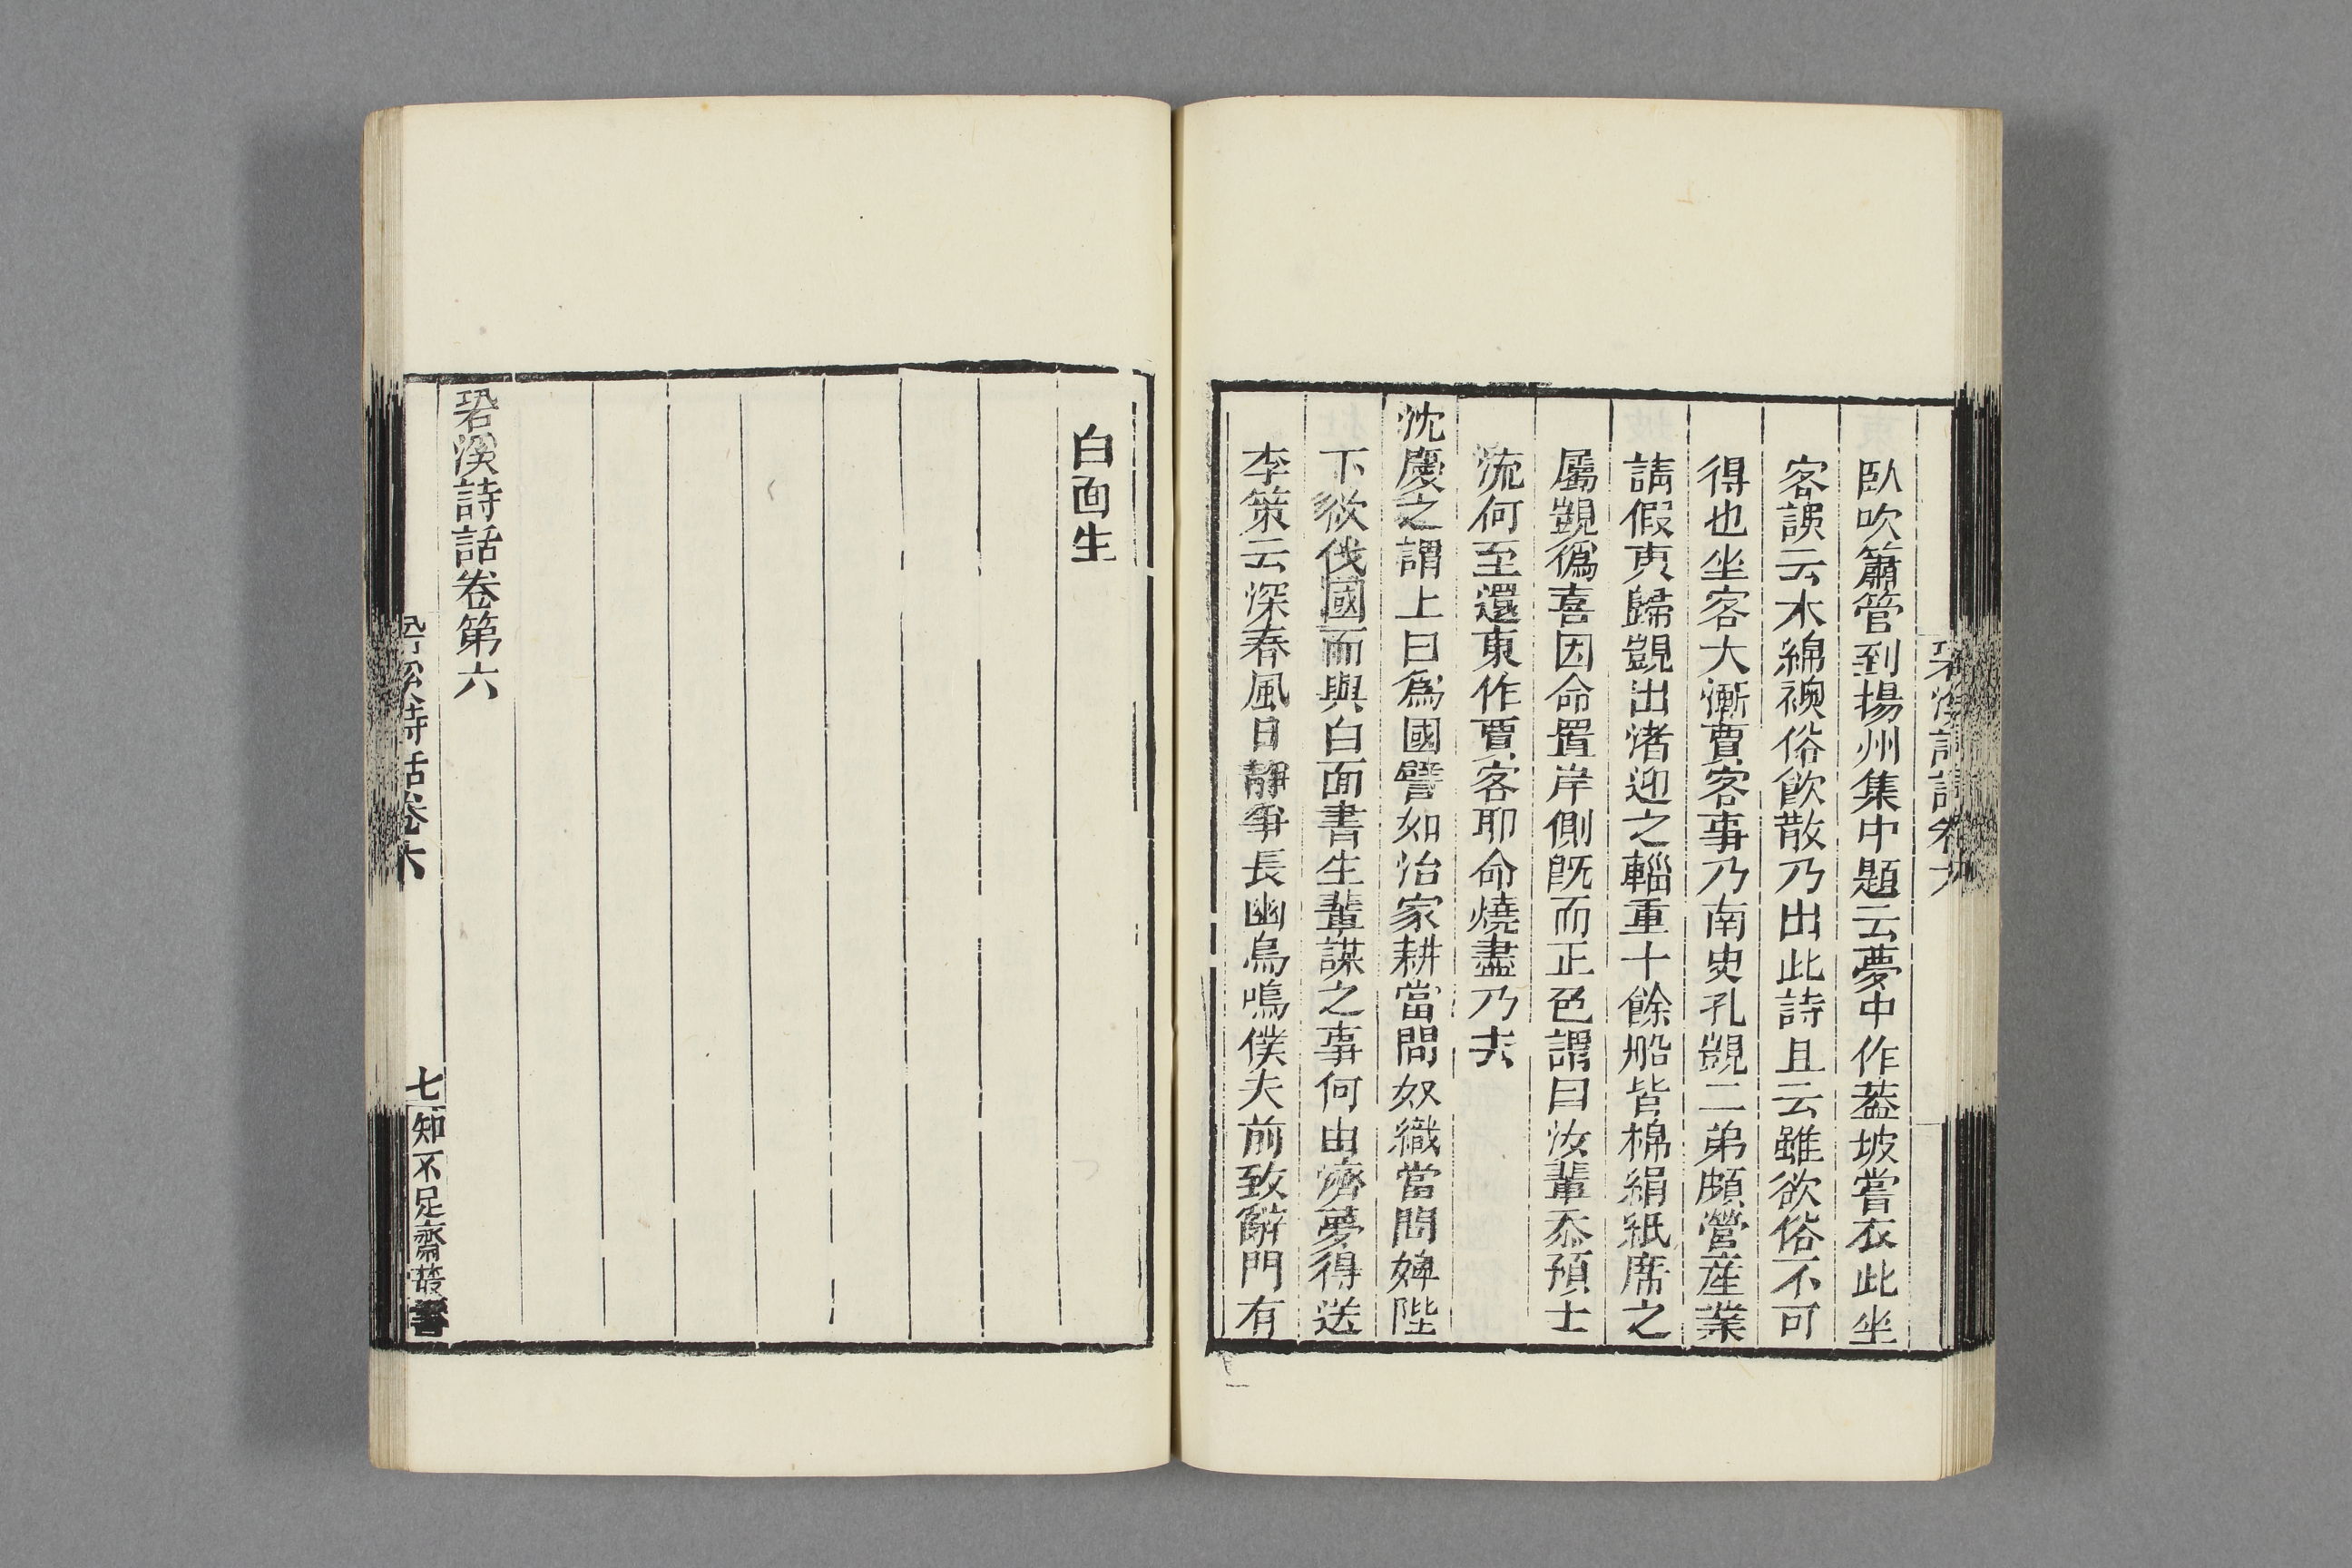 臥吹簫管到揚州集中題云夢中作蓋坡嘗衣此坐
客誤云木綿襖俗飲散乃出此詩且云雖欲俗不可
得也坐客大慚賈客事乃南史孔覬二弟頗營産業
請假東歸覬出渚迎之輜重十餘船皆棉絹紙席之
屬覬僞喜因命置岸側既而正色謂曰汝輩忝預士
流何至還東作賈客耶命燒盡乃去
沈慶之謂上曰爲國譬如治家耕當問奴織當問婢陛
下欲伐國而與白面書生輩謀之事何由濟夢得送
李策云深春風日靜爭長幽鳥鳴僕夫前致辭門有
白面生
䂬溪詩話卷第六
䂬溪詩話卷六
七
知不足齋叢書